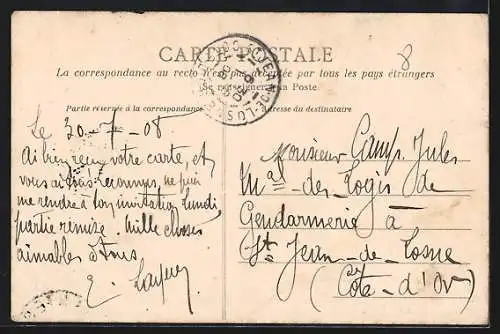 8
CARTE POSTALE
La correspondance au recto n'est pas acceptée par tous les pays étrangers
Se renseigner à la Poste
Partie réservée à la correspondance
Adresse du destinataire
Le 30-7-08
Ai bien reçu votre carte, et
vous ai tous reconnus, ne puis
me rendre à ton invitation lundi
partie remise. Mille choses
aimables à tous
E.
Monsieur Camp. Jules
Mal-des-Logis de
Gendarmerie à
St Jean-de-Losne
(Côte-d'Or)